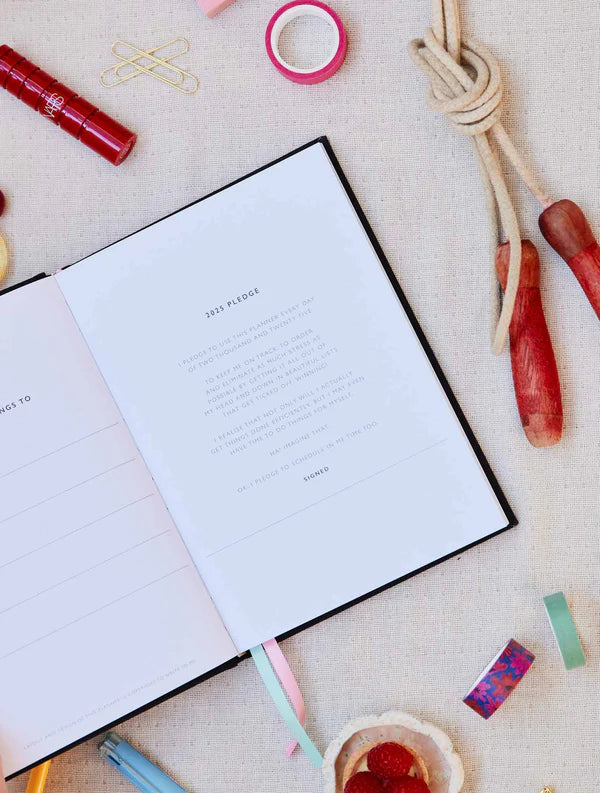 NARS
NGS TO
2025 PLEDGE
I PLEDGE TO USE THIS PLANNER EVERY DAY
OF TWO THOUSAND AND TWENTY FIVE
TO KEEP ME ON TRACK, TO ORDER
AND ELIMINATE AS MUCH STRESS AS
POSSIBLE BY GETTING IT ALL OUT OF
MY HEAD AND DOWN IN BEAUTIFUL LISTS
THAT GET TICKED OFF. WINNING!
I REALISE THAT NOT ONLY WILL I ACTUALLY
GET THINGS DONE EFFICIENTLY, BUT I MAY EVEN
HAVE TIME TO DO THINGS FOR MYSELF.
HA! IMAGINE THAT.
OK, I PLEDGE TO SCHEDULE IN ME TIME TOO.
SIGNED